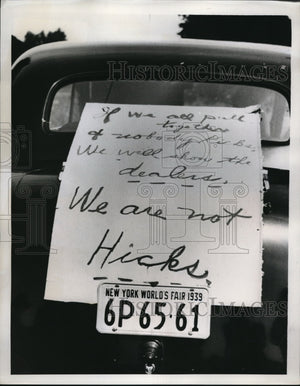 If we all pull
together
& nobody
We will show the
dealers.
We are not
Hicks
NEW YORK WORLD'S FAIR 1939
6P65 61
HISTORIC IMAGES